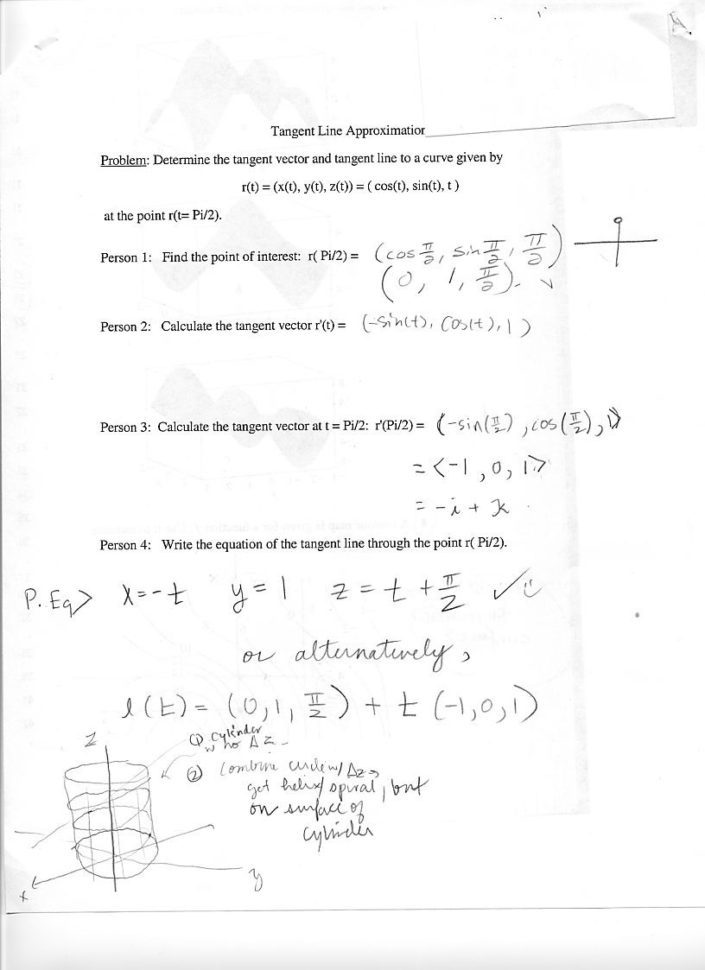 Tangent Line Approximation
Problem: Determine the tangent vector and tangent line to a curve given by
r(t) = (x(t), y(t), z(t)) = ( cos(t), sin(t), t )
at the point r(t= Pi/2).
Person 1: Find the point of interest: r( Pi/2) = (cos π/2, sin π/2, π/2)
(0, 1, π/2). ✓
Person 2: Calculate the tangent vector r'(t) = (-sin(t), cos(t), 1)
Person 3: Calculate the tangent vector at t = Pi/2: r'(Pi/2) = (-sin(π/2), cos(π/2), 1)
= <-1, 0, 1>
= -i + k
Person 4: Write the equation of the tangent line through the point r( Pi/2).
P. Eq> x=-t y=1 z=t+π/2 ✓☺
or alternatively,
l(t) = (0,1,π/2) + t(-1,0,1)
① cylinder
w no Δz
z
② Combine circle w/ Δz →
get helix/spiral, but
on surface of
cylinder
y
x